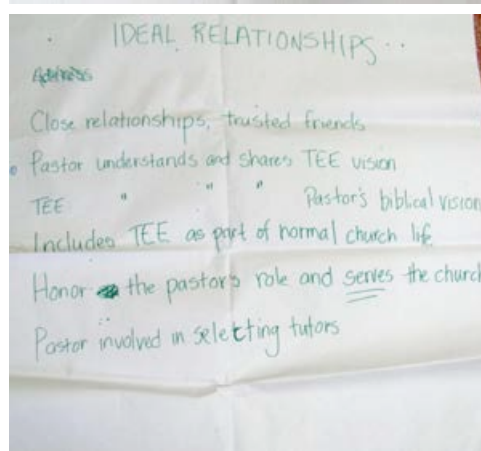 IDEAL RELATIONSHIPS..
Address
Close relationships, trusted friends
Pastor understands and shares TEE vision
TEE " " " Pastor's biblical vision
Includes TEE as part of normal church life
Honor the pastor's role and serves the church
Pastor involved in selecting tutors